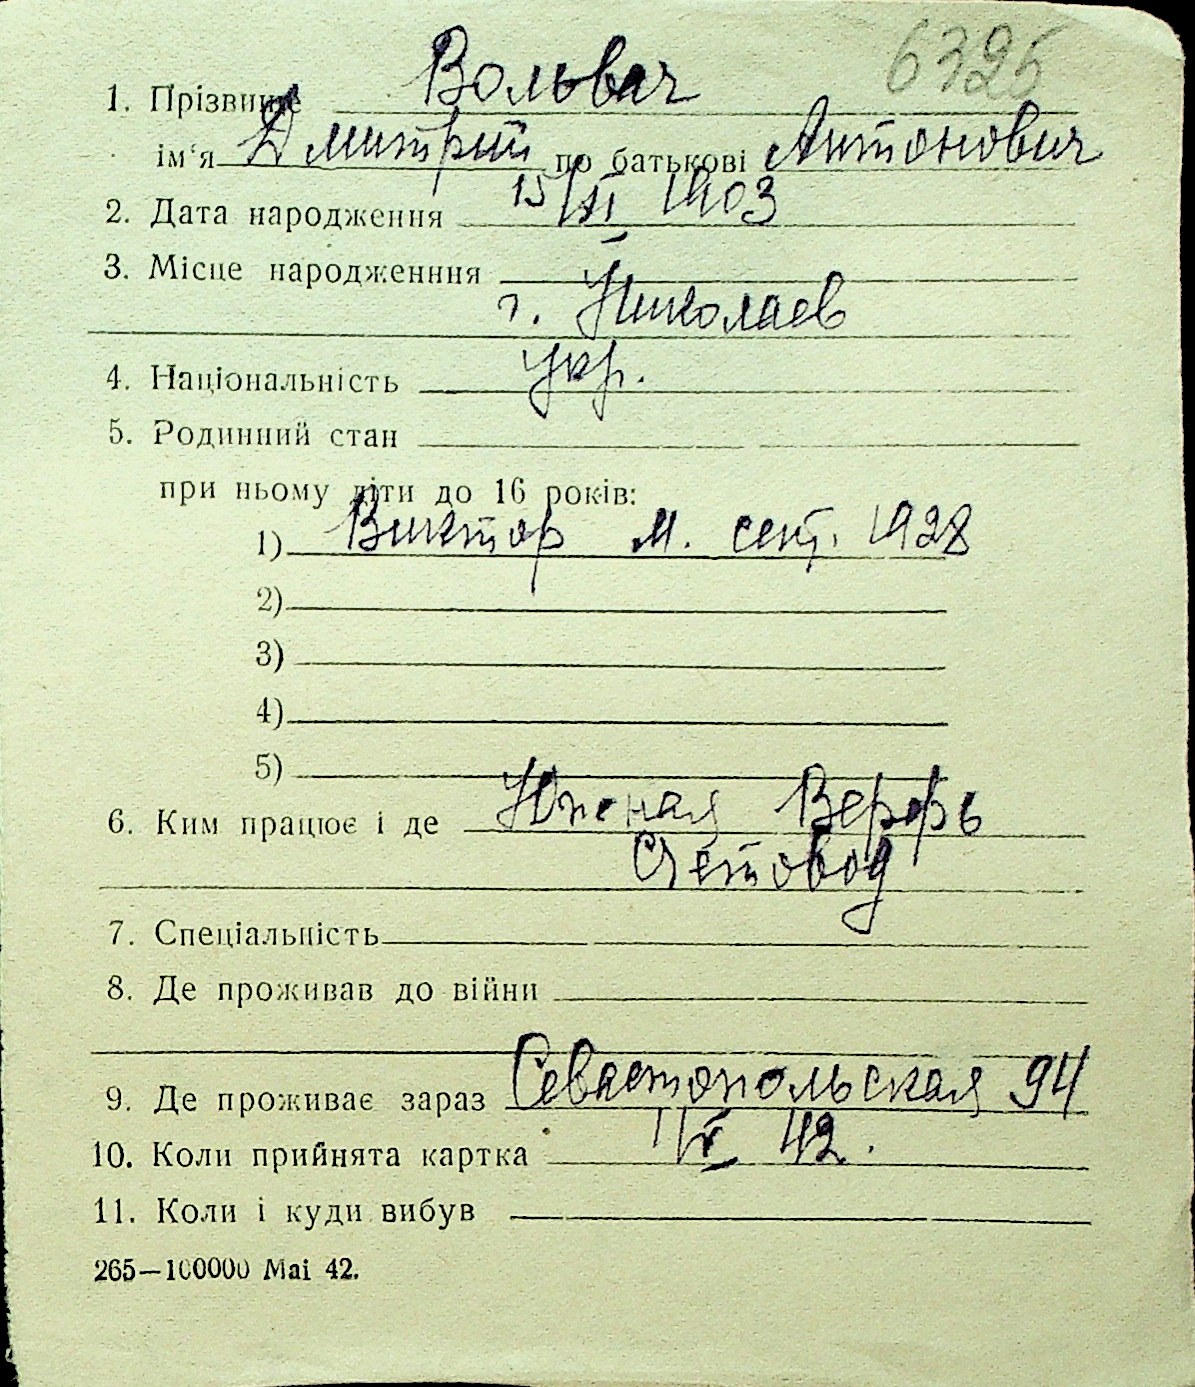 6325
1. Прізвище Вольвач
ім‘я Дмитрий по батькові Антонович
2. Дата народження 15/XI 1903
3. Місце народженння
г. Николаев
4. Національність укр.
5. Родинний стан
при ньому діти до 16 років:
1) Виктор м. сент. 1928
2)
3)
4)
5)
6. Ким працює і де Южная Верфь
Счетовод
7. Спеціальність
8. Де проживав до війни
9. Де проживає зараз Севастопольская 94
10. Коли прийнята картка 42.
11. Коли і куди вибув
265—100000 Mai 42.